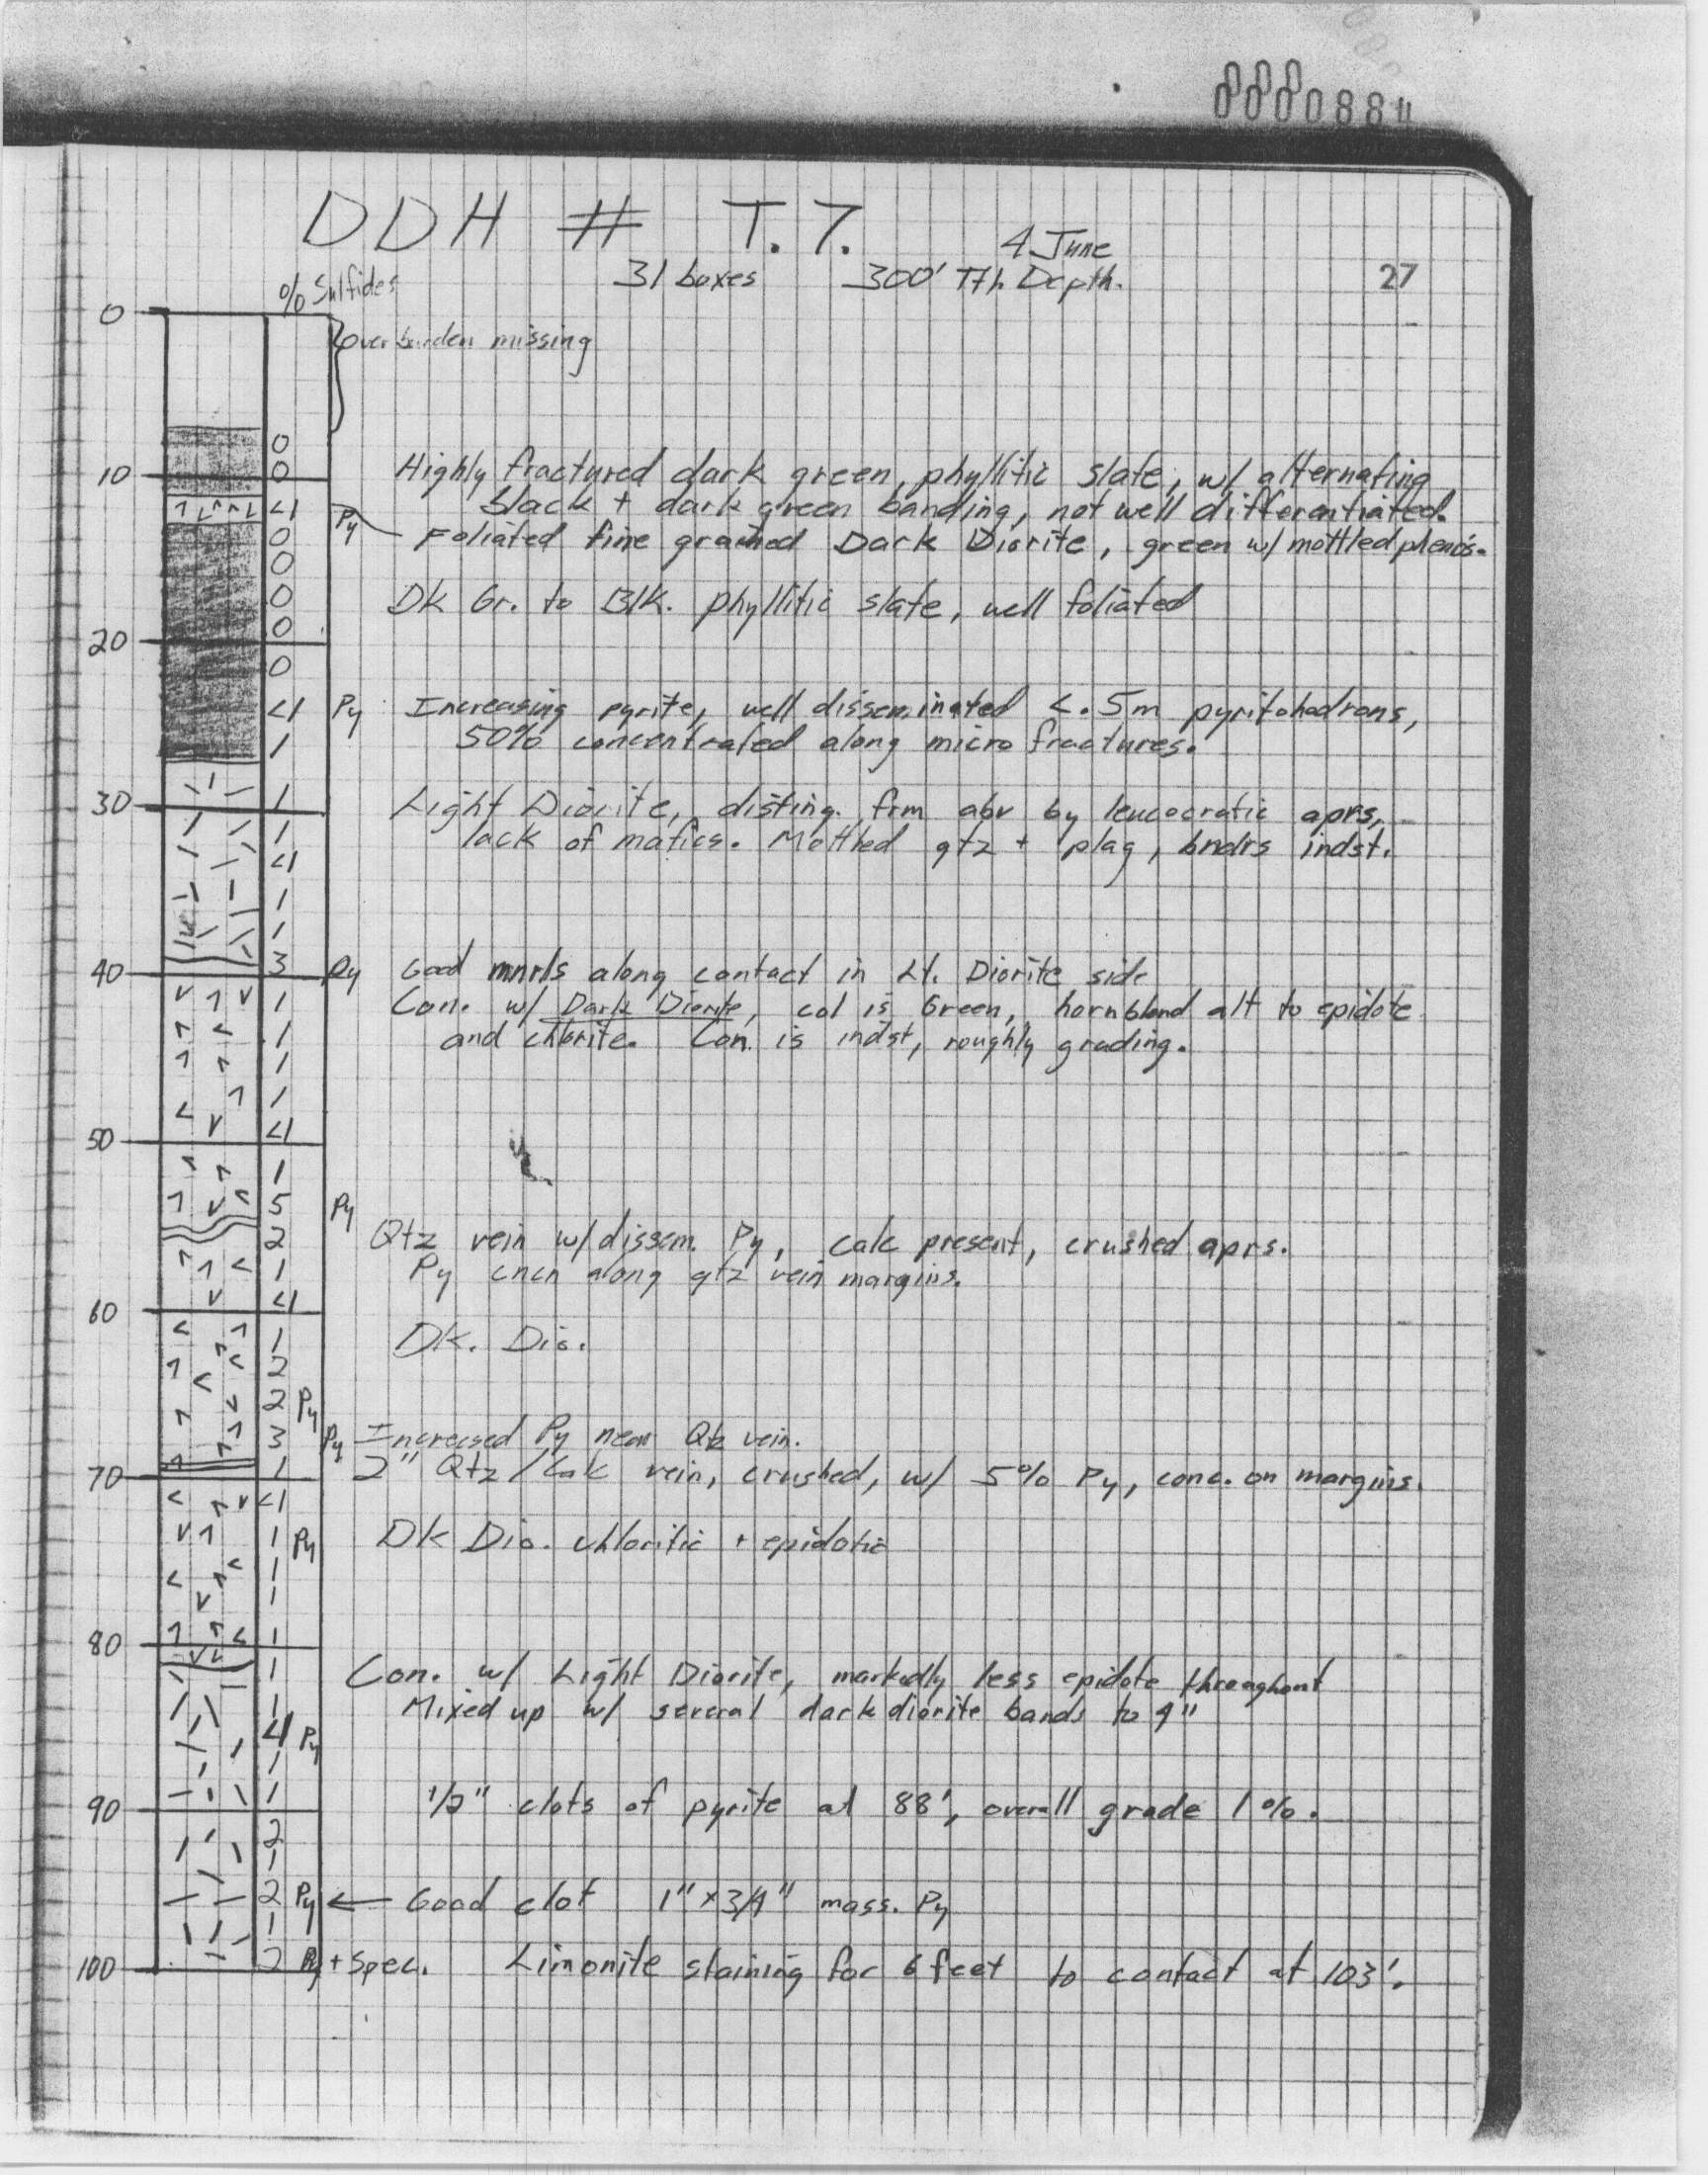 DDH # T.7.
4 June
31 boxes 300' Tth Depth.
27
% Sulfides
0
overburden missing
0
0
10
Highly fractured dark green, phyllitic slate, w/ alternating
black + dark green banding, not well differentiated.
<1 Py
0
Foliated fine grained Dark Diorite, green w/ mottled phenos.
0
0
Dk Gr. to Blk. phyllitic slate, well foliated
0
20
0
<1 Py Increasing pyrite, well disseminated <.5m pyritohedrons,
1
50% concentrated along micro fractures.
1
30
Light Diorite, disting. frm abv by leucocratic aprs,
1
lack of mafics. Mottled qtz + plag, bndrs indst.
<1
1
1
3
40 Py Good mnrls along contact in Lt. Diorite side
1
Con. w/ Dark Diorite, col is Green, hornblend alt to epidote
1
and chlorite. Con. is indst, roughly grading.
1
1
<1
50
1
5 Py
2
Qtz vein w/ dissem. Py, calc present, crushed aprs.
1
Py cncn along qtz vein margins.
<1
60
1
Dk. Dio.
2
2 Py
3 Py Increased Py near Qtz vein.
1
70
2" Qtz/Calc vein, crushed, w/ 5% Py, conc. on margins.
<1
1 Py
Dk Dio. chloritic + epidotic
1
1
1
80
1
Con. w/ Light Diorite, markedly less epidote throughout
1
Mixed up w/ several dark diorite bands to 9"
<1 Py
1
1
90
1/2" clots of pyrite at 88', overall grade 1%.
2
1
2 Py ← Good clot 1" x 3/4" mass. Py
1
100 2 Py + Spec. Limonite staining for 6 feet to contact at 103'.